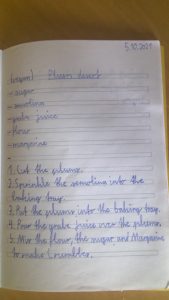 5.10.2021
Plum desert
- sugar
- semolina
- juice
- flour
- margarine
-
1. Cut the plums.
2. Sprinkle the semolina into the
baking tray.
3. Put the plums into the baking tray.
4. Pour the juice over the plums.
5. Mix the flour, the sugar and Margarine
to make Crumbles.